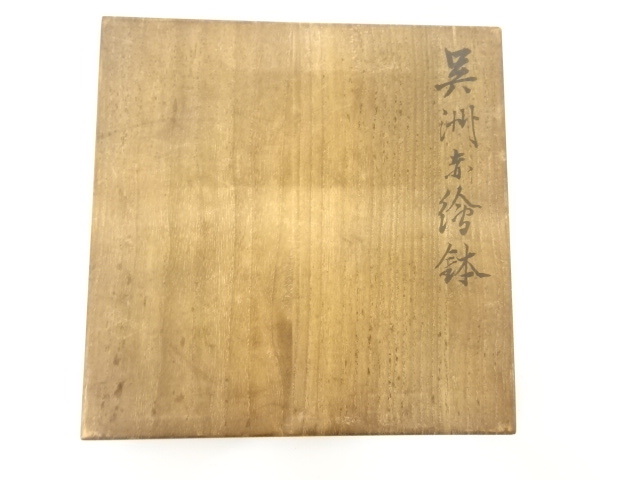 呉洲赤繪鉢